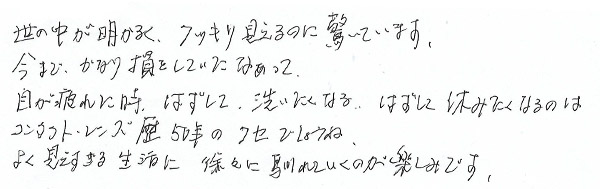 世の中が明かるく、クッキリ見えるのに驚いています。
今まで、かなり損をしていたなあって。
目が疲れた時、はずして、洗いたくなる、はずして休みたくなるのは
コンタクト・レンズ歴50年のクセでしょうね。
よく見えすぎる生活に徐々に馴れていくのが楽しみです。